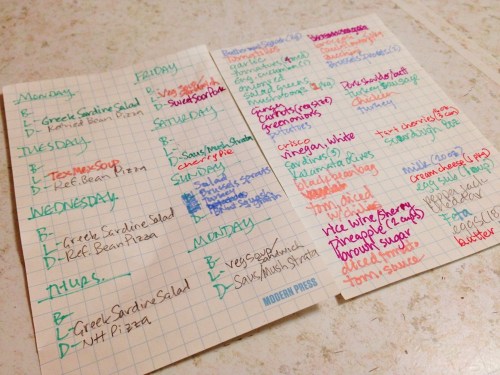 MONDAY
B-
L- Greek Sardine Salad
D- Refried Bean Pizza
TUESDAY
B-
L- Tex Mex Soup
D- Ref. Bean Pizza
WEDNESDAY
B-
L- Greek Sardine Salad
D- Ref. Bean Pizza
THURS.
B-
L- Greek Sardine Salad
D- NH Pizza
FRIDAY
B-
L- Veg Sandwich
D- Sweet Sour Pork
SATURDAY
B-
L-
D- Saus/Mush Strata
cherry pie
SUNDAY
Salad
Brussels sprouts
Turkey
MONDAY
B-
L- Veg soup/sandwich
D- Saus/Mush Strata
MODERN PRESS
Butternut Squash
tomatoes
garlic
salad greens
mushrooms
Ginger
Carrots
Green onions
potatoes
vinegar, white
Sardines
Kalamata olives
black beans
tom. diced
rice wine/sherry
Pineapple (2 cans)
brown sugar
diced tomato
tom. sauce
Brussels Sprouts
Pork shoulder/butt
Turkey sausage
chicken
turkey
tart cherries
Sourdough
milk
cream cheese
egg subs 1 cup
pepper jack
cheddar
Feta
eggs
butter